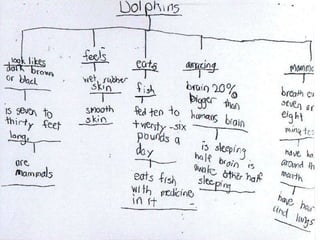 Dolphins
look likes
dark brown
or black
is seven to
thirty feet
long
are
mammals
feels
wet rubber
skin
smooth
skin
eats
fish
fed ten to
twenty-six
pounds a
day
eats fish
with medicine
in it
amazing
brain 20%
bigger than
humans brain
is sleeping
half brain is
awake other half
sleeping
mamm
breath ev
seven or
eight
minutes
have ha
around th
have hear
and lungs